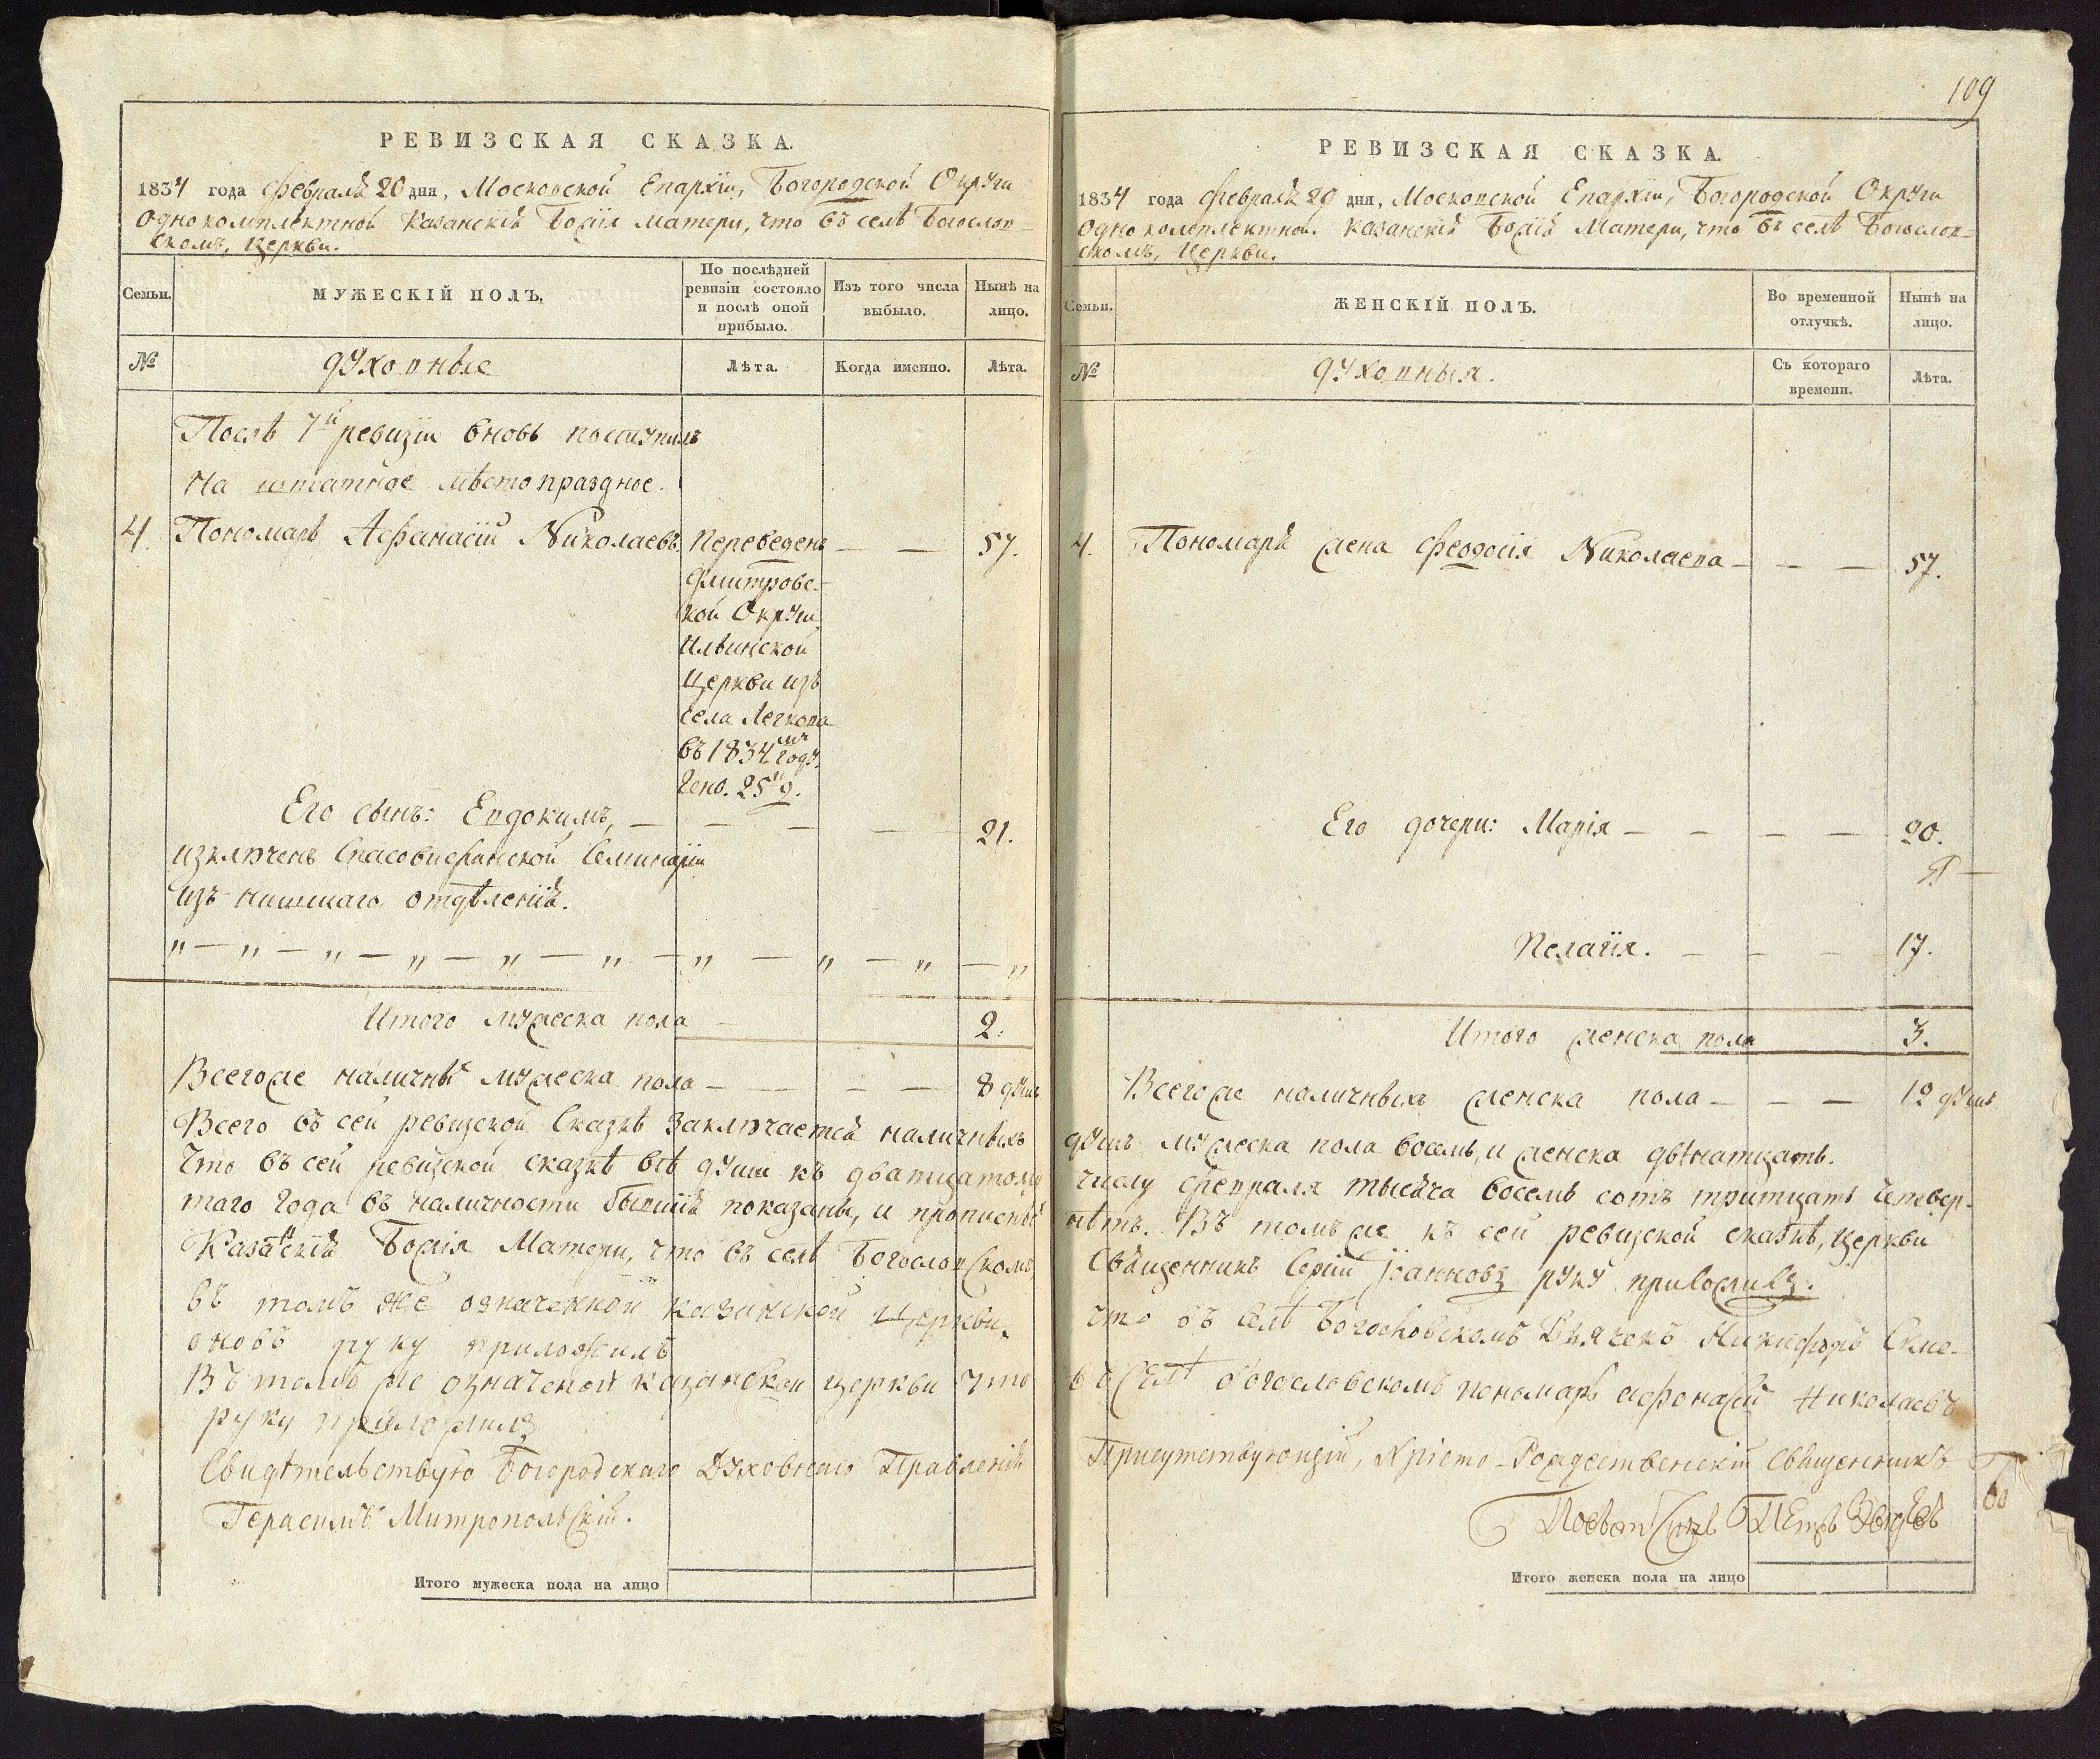 РЕВИЗСКАЯ СКАЗКА.
1834 года Февраля 20 дня, Московской Епархіи, Богородской Округи
Однокомплектной Казанскія Божія Матери, что въ селѣ Богослов-
скомъ, Церкви.
Семьи.
МУЖЕСКІЙ ПОЛЪ.
По послѣдней ревизіи состояло и послѣ оной прибыло.
Изъ того числа выбыло.
Нынѣ на лицо.
№
Духовные
Лѣта.
Когда именно.
Лѣта.
Послѣ 7й ревизіи вновь поступилъ
на штатное мѣсто праздное.
4. Пономарь Афанасій Николаевъ. Переведенъ — — 57.
Дмитровс-
кой Округи,
Ильинской
Церкви изъ
села Легкова
въ 1834мъ году.
Генв. 25 д.
Его сынъ: Евдокимъ, — — — — 21.
изключенъ Спасовифанской Семинаріи
изъ низшаго отдѣленія.
„ — „ — „ — „ — „ — „ — „ — „ — „ — „
Итого мужеска пола — 2.
Всегоже наличныхъ мужеска пола — — — — 8 душъ
Всего въ сей ревизской Сказкѣ заключается наличныхъ
Что въ сей ревизской сказкѣ всѣ души къ дватцатому
таго года въ наличности бывшія показаны, и прописныхъ
Казанскія Божія Матери, что въ селѣ Богословскомъ,
въ томъ же означенной казанской Церкви,
оновъ руку приложилъ
Въ томъ же означеной казанской церкви что
руку приложилъ
Свидѣтельствую Богородскаго Духовнаго Правленія
Герасимъ Митропольскій.
Итого мужеска пола на лицо
109
РЕВИЗСКАЯ СКАЗКА.
1834 года Февраля 20 дня, Московской Епархіи, Богородской Округи
Однокомплектной Казанскія Божія Матери, что въ селѣ Богослов-
скомъ, Церкви.
Семьи.
ЖЕНСКІЙ ПОЛЪ.
Во временной отлучкѣ.
Нынѣ на лицо.
№
Духовныя.
Съ котораго времени.
Лѣта.
4. Пономаря жена Феодосія Николаева — — — 57.
Его дочери: Марія — — — — 20.
Пелагія. — — — 17.
Итого женска пола 3.
Всегоже наличныхъ женска пола — — — 12 душъ
душъ мужеска пола восемь, и женска двѣнатцать.
числу февраля тысяча восемь сотъ тритцать четвер-
нѣтъ. Въ томъ же къ сей ревизской сказкѣ, церкви
Священникъ Сергій Іоанновъ руку приложилъ.
что въ селѣ Богословскомъ Дьячекъ Никифоръ Симе-
въ селѣ богословскомъ пономарь афонасій Николаевъ
Присутствующій, Христо-Рождественскій Священникъ
Итого женска пола на лицо